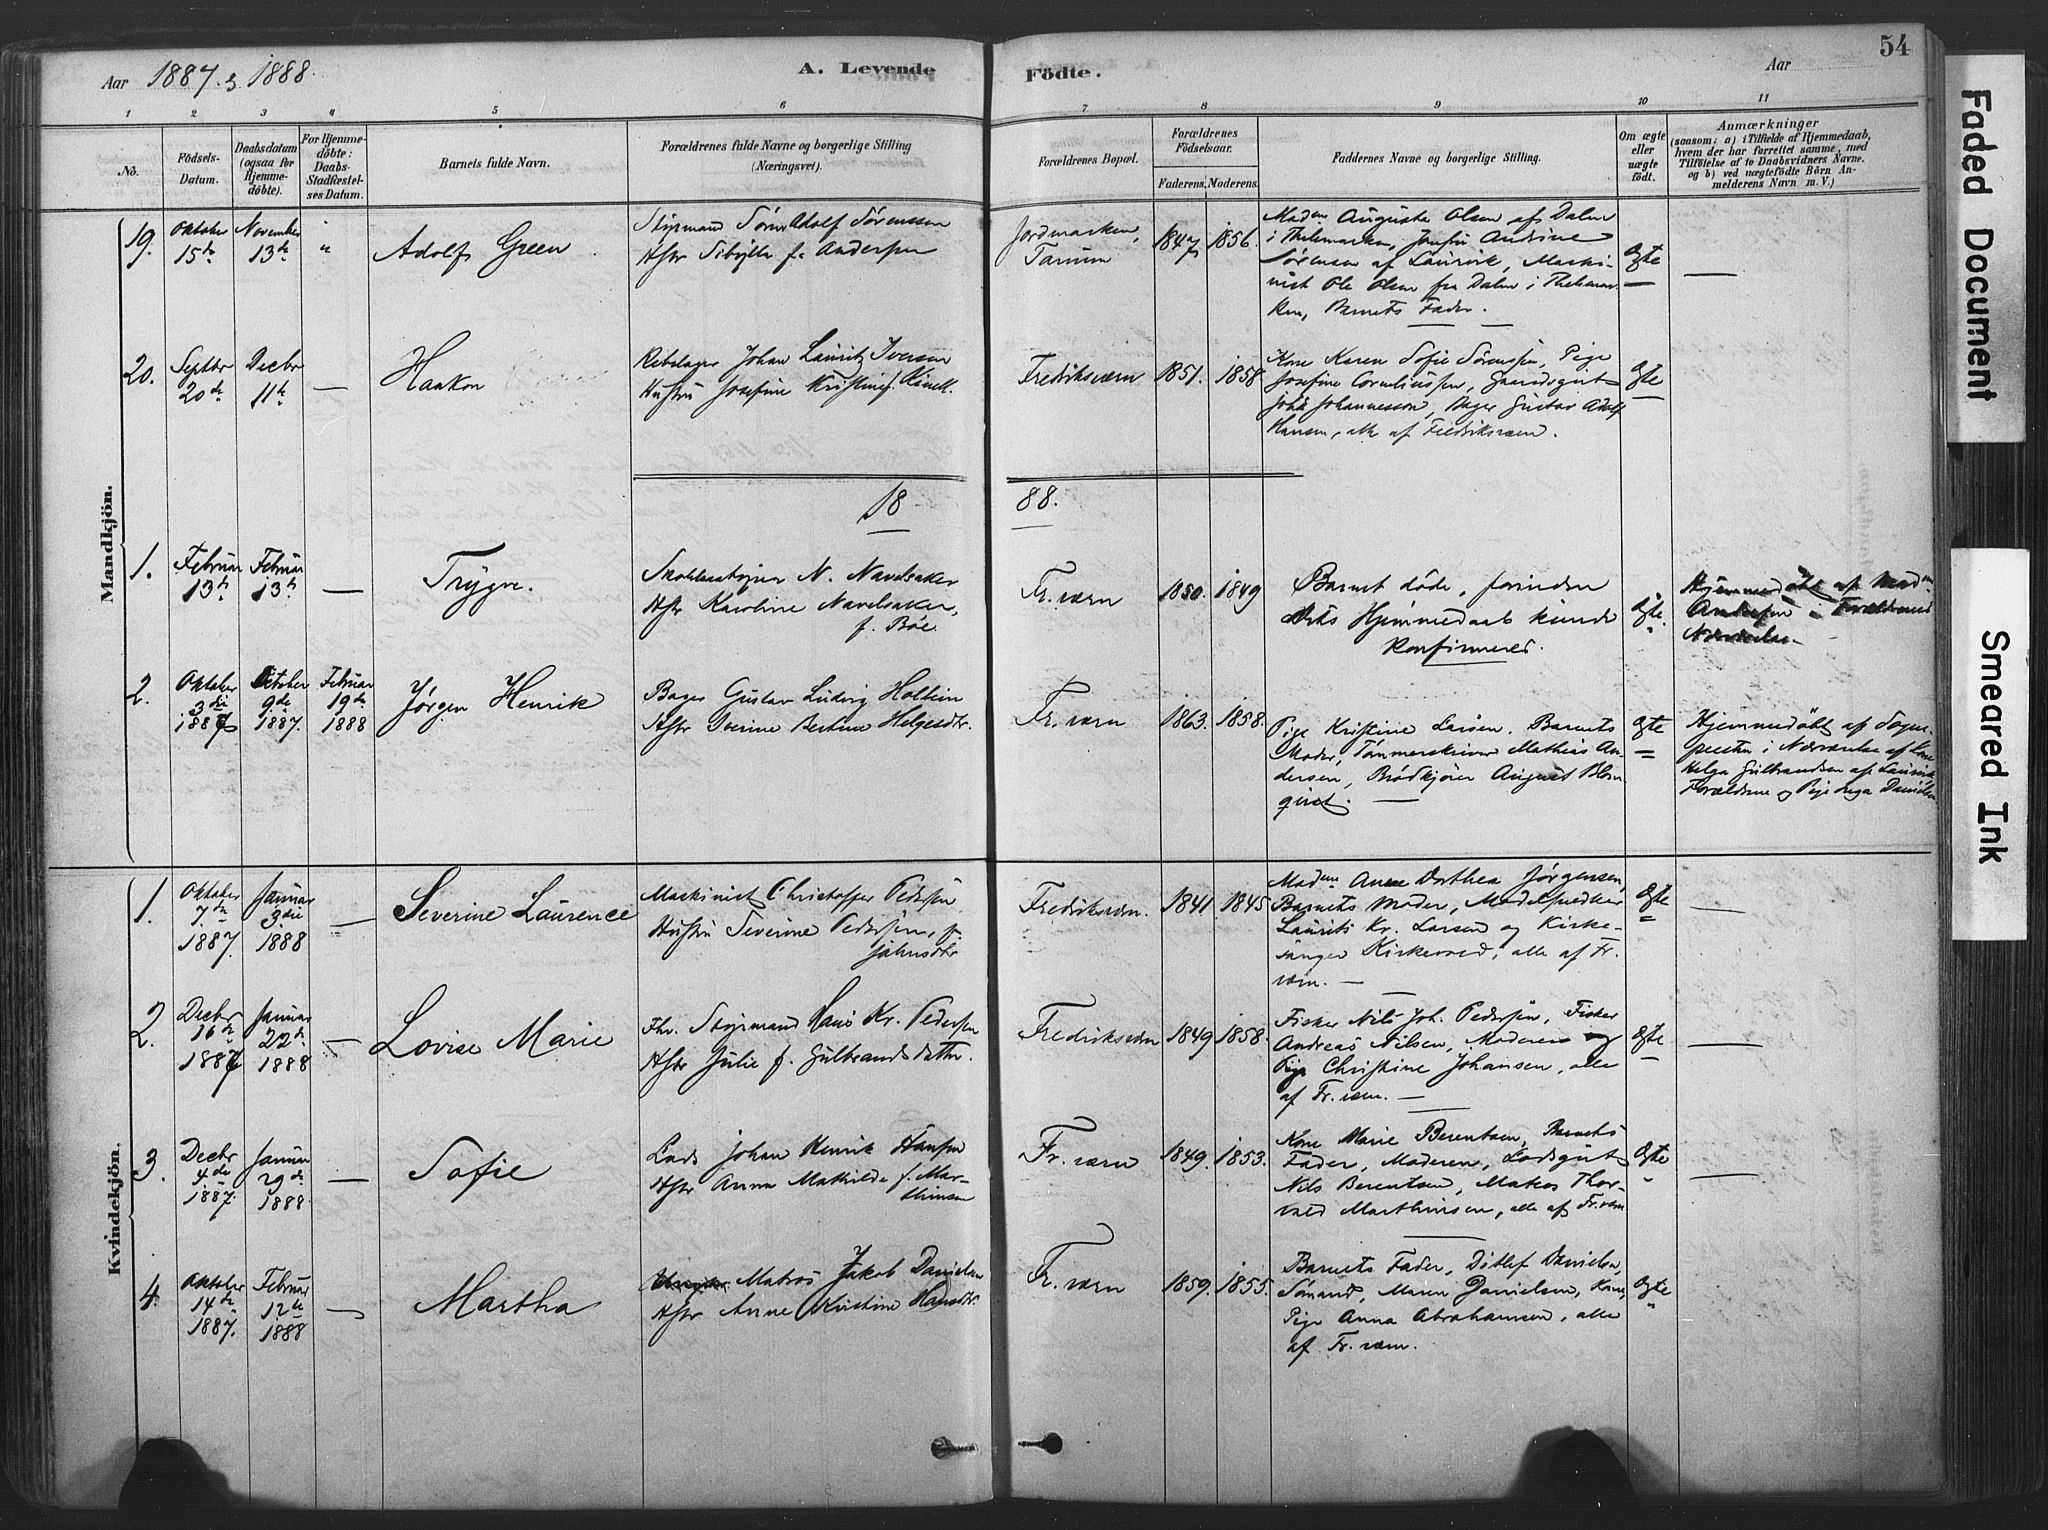 Aar 1887 & 1888.
A. Levende Födte.
Aar
54
1 2 3 4 5 6 7 8 9 10 11
No.
Födsels-Datum.
Daabsdatum (ogsaa for Hjemmedöbte).
For Hjemmedöbte: Daabs-Stadfæstelses Datum.
Barnets fulde Navn.
Forældrenes fulde Navne og borgerlige Stilling (Næringsvei).
Forældrenes Bopæl.
Forældrenes Födselsaar.
Faderens. Moderens.
Faddernes Navne og borgerlige Stilling.
Om ægte eller uægte födt.
Anmærkninger
(saasom: a) i Tilfælde af Hjemmedaab, hvem der har forrettet samme, med Tilföielse af to Daabsvidners Navne, og b) ved uægtefödte Börn Anmelderens Navn m. V.)
Mandkjön.
19.
Oktober 15de
November 13de
"
Adolf Green
Styrmand Søren Adolf Sørenssen
Hstr Sibylla f. Anderssen
Jordmarken, Tanum
1847
1856.
Madm Augusta Olsen af Dalen
i Thelemarken, Josefin Andrine
Sørensen af Laurvik, Maski-
nist Ole Olsen fra Dalen i Thelemar-
ken, Barnets Fader.
Egte
20.
Septbr 20de
Decbr 11te
Haakon
Rebslager Johan Lauritz Iversen
Hustru Josefine Kristine f.
Fredriksværn
1851.
1858
Kone Karen Sofie Sørenssen, Pige
Josefine Corneliussen,
Johan Johannesson, Bager Gustav Adolf
Hansen, alle af Fredriksværn.
Egte
18 88.
1.
Februar 13de
Februar 13de
Trygve.
N. Navelsaker
Hstr Karoline Navelsaker,
f. Bøe.
Fr. værn
1850.
1849
Barnet døde, forinden
dets Hjemmedaab kunde
konfirmeres.
Egte.
Hjemmedøbt af Madm
Anderssen i Forældrenes
Nærværelse.
2.
Oktober 3die 1887
October 9de 1887.
Februar 19de 1888
Jørgen Henrik
Bager Gustav Ludvig Holtein
Hstr Iverine Bertine Helgesdtr.
Fr. værn
1863.
1858.
Pige Kristine Larsen, Barnets
Moder, Tømmerskriver Mathias An-
dersen, Brødkjører August Blom-
qvist.
Egte
Hjemmedøbt af Sogne-
presten i Nærværelse af Kone
Helga Gulbrandsen af Laurvik,
Forældrene og Pige Inga Danielsen
Kvindekjön.
1.
Oktober 7de 1887.
Januar 3die 1888
Severine Laurence
Maskinist Christoffer Pedersen
Hustru Severine Pedersen, f.
Jahnsdtr
Fredriksværn.
1841
1845
Madm Anne Dorthea Jørgensen,
Barnets Moder, Modelsnedker
Laurits Kr. Larsen og Kirke-
sanger Kirkevold, alle af Fr.
værn.
Egte
2.
Decbr 16de 1887
Januar 22de 1888
Lovise Marie
Fhv. Styrmand Hans Kr. Pedersen
Hstr Julie f. Gulbrandsdatter.
Fredriksværn
1849
1858.
Fisker Nils Joh. Pedersen, Fisker
Andreas Nilsen, Moderen og
Pige Christine Johansen, alle
af Fr. værn.
Egte
3.
Decbr 4de 1887.
Januar 29de 1888.
Sofie
Lods Johan Henrik Hansen
Hstr Anna Mathilde f. Mar-
thinsen
Fr. værn
1849.
1853.
Kone Marie Berentsen, Barnets
Fader, Moderen, Lodsgut
Nils Berentsen, Matros Thor-
vald Marthinsen, alle af Fr. værn
Egte
4.
Oktober 14de 1887.
Februar 12te 1888
Martha
Matros Jakob Danielsen
Hstr Anne Kristine Hansdtr.
Fr. værn
1859.
1855.
Barnets Fader, Ditlef Danielsen,
Sømand, Maren Danielsen, Kone,
Pige Anna Abrahamsen, alle
af Fr. værn.
Egte
Faded Document
Smeared Ink